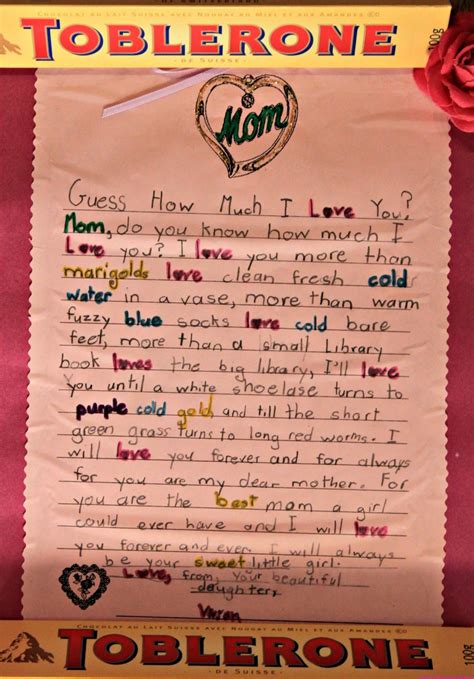 TOBLERONE
100g
DE SUISSE
Mom
Guess How Much I Love You?
Mom, do you know how much I
Love you? I love you more than
marigolds love clean fresh cold
water in a vase, more than warm
fuzzy blue socks love cold bare
feet, more than a small Library
book loves the big library, I'll love
you until a white shoelase turns to
purple cold gold, and till the short
green grass turns to long red worms. I
will love you forever and for always
for you are my dear mother. For
you are the best mom a girl
could ever have and I will love
you forever and ever. I will always
be your sweet little girl.
Love, from, your beautiful
daughter,
CHOCOLAT AU LAIT SUISSE AVEC NOUGAT AU MIEL ET AUX AMANDES
TOBLERONE
100g